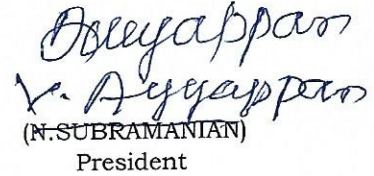 Ayyappan
V. Ayyappan
(N.SUBRAMANIAN)
President